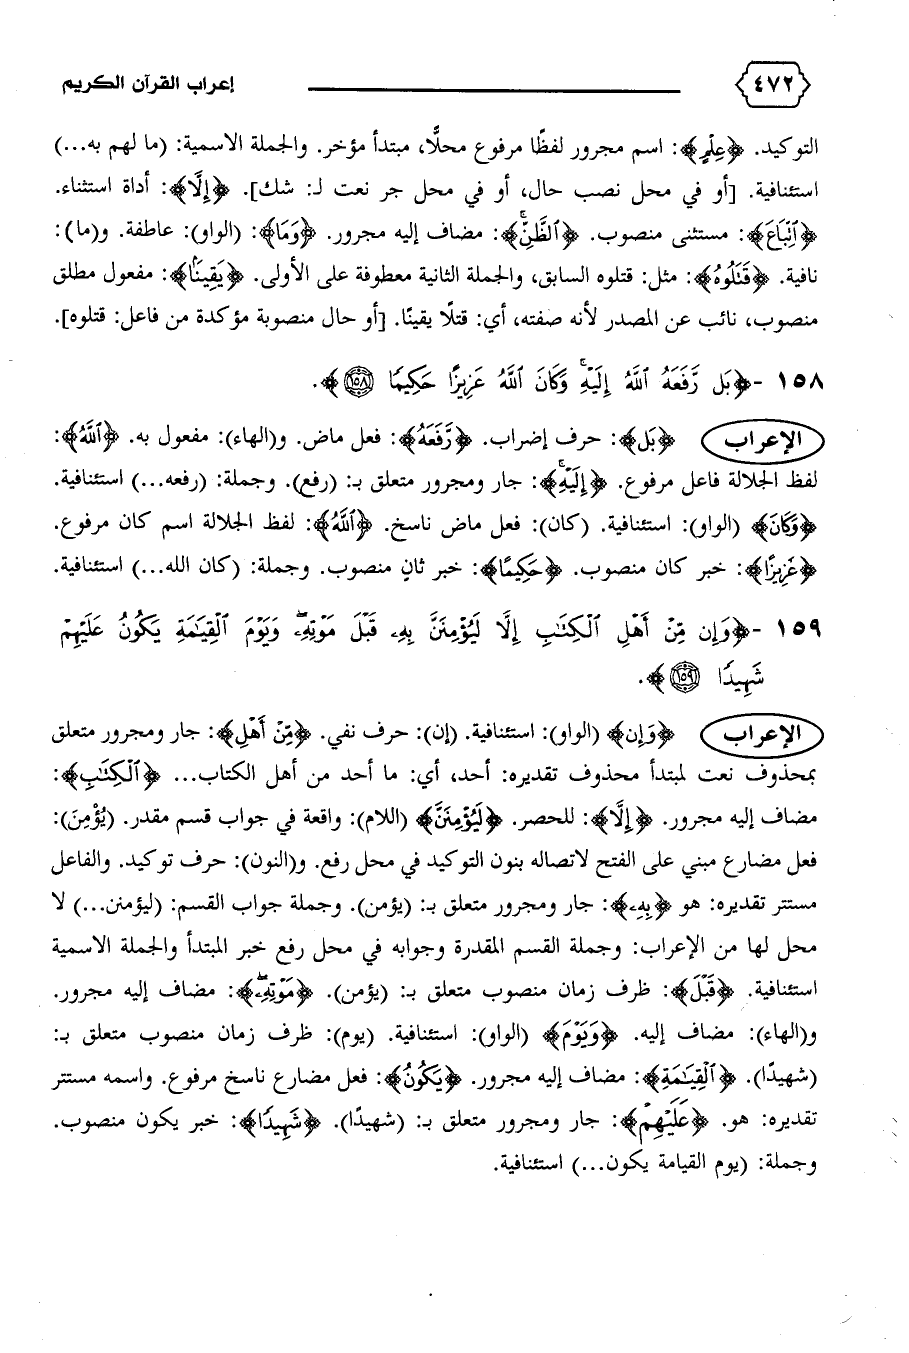 ٤٧٢ إعراب القرآن الكريم
التوكيد. ﴿عِلْمٍ﴾: اسم مجرور لفظًا مرفوع محلًّا، مبتدأ مؤخر. والجملة الاسمية: (ما لهم به...)
استئنافية. [أو في محل نصب حال، أو في محل جر نعت لـ: شك]. ﴿إِلَّا﴾: أداة استثناء.
﴿ٱتِّبَاعَ﴾: مستثنى منصوب. ﴿ٱلظَّنِّۚ﴾: مضاف إليه مجرور. ﴿وَمَا﴾: (الواو): عاطفة. و(ما):
نافية. ﴿قَتَلُوهُ﴾: مثل: قتلوه السابق، والجملة الثانية معطوفة على الأولى. ﴿يَقِينَۢا﴾: مفعول مطلق
منصوب، نائب عن المصدر لأنه صفته، أي: قتلًا يقينًا. [أو حال منصوبة مؤكدة من فاعل: قتلوه].
١٥٨ -﴿بَل رَّفَعَهُ ٱللَّهُ إِلَيْهِۚ وَكَانَ ٱللَّهُ عَزِيزًا حَكِيمًا ١٥٨﴾.
الإعراب ﴿بَل﴾: حرف إضراب. ﴿رَّفَعَهُ﴾: فعل ماض. و(الهاء): مفعول به. ﴿ٱللَّهُ﴾:
لفظ الجلالة فاعل مرفوع. ﴿إِلَيْهِۚ﴾: جار ومجرور متعلق بـ: (رفع). وجملة: (رفعه...) استئنافية.
﴿وَكَانَ﴾ (الواو): استئنافية. (كان): فعل ماض ناسخ. ﴿ٱللَّهُ﴾: لفظ الجلالة اسم كان مرفوع.
﴿عَزِيزًا﴾: خبر كان منصوب. ﴿حَكِيمًا﴾: خبر ثانٍ منصوب. وجملة: (كان الله...) استئنافية.
١٥٩ -﴿وَإِن مِّنْ أَهْلِ ٱلْكِتَٰبِ إِلَّا لَيُؤْمِنَنَّ بِهِۦ قَبْلَ مَوْتِهِۦۖ وَيَوْمَ ٱلْقِيَٰمَةِ يَكُونُ عَلَيْهِمْ
شَهِيدًا ١٥٩﴾.
الإعراب ﴿وَإِن﴾ (الواو): استئنافية. (إن): حرف نفي. ﴿مِّنْ أَهْلِ﴾: جار ومجرور متعلق
بمحذوف نعت لمبتدأ محذوف تقديره: أحد، أي: ما أحد من أهل الكتاب... ﴿ٱلْكِتَٰبِ﴾:
مضاف إليه مجرور. ﴿إِلَّا﴾: للحصر. ﴿لَيُؤْمِنَنَّ﴾ (اللام): واقعة في جواب قسم مقدر. (يُؤْمِنَ):
فعل مضارع مبني على الفتح لاتصاله بنون التوكيد في محل رفع. و(النون): حرف توكيد. والفاعل
مستتر تقديره: هو ﴿بِهِۦ﴾: جار ومجرور متعلق بـ: (يؤمن). وجملة جواب القسم: (ليؤمنن...) لا
محل لها من الإعراب: وجملة القسم المقدرة وجوابه في محل رفع خبر المبتدأ والجملة الاسمية
استئنافية. ﴿قَبْلَ﴾: ظرف زمان منصوب متعلق بـ: (يؤمن). ﴿مَوْتِهِۦۖ﴾: مضاف إليه مجرور.
و(الهاء): مضاف إليه. ﴿وَيَوْمَ﴾ (الواو): استئنافية. (يوم): ظرف زمان منصوب متعلق بـ:
(شهيدًا). ﴿ٱلْقِيَٰمَةِ﴾: مضاف إليه مجرور. ﴿يَكُونُ﴾: فعل مضارع ناسخ مرفوع. واسمه مستتر
تقديره: هو. ﴿عَلَيْهِمْ﴾: جار ومجرور متعلق بـ: (شهيدًا). ﴿شَهِيدًا﴾: خبر يكون منصوب.
وجملة: (يوم القيامة يكون...) استئنافية.